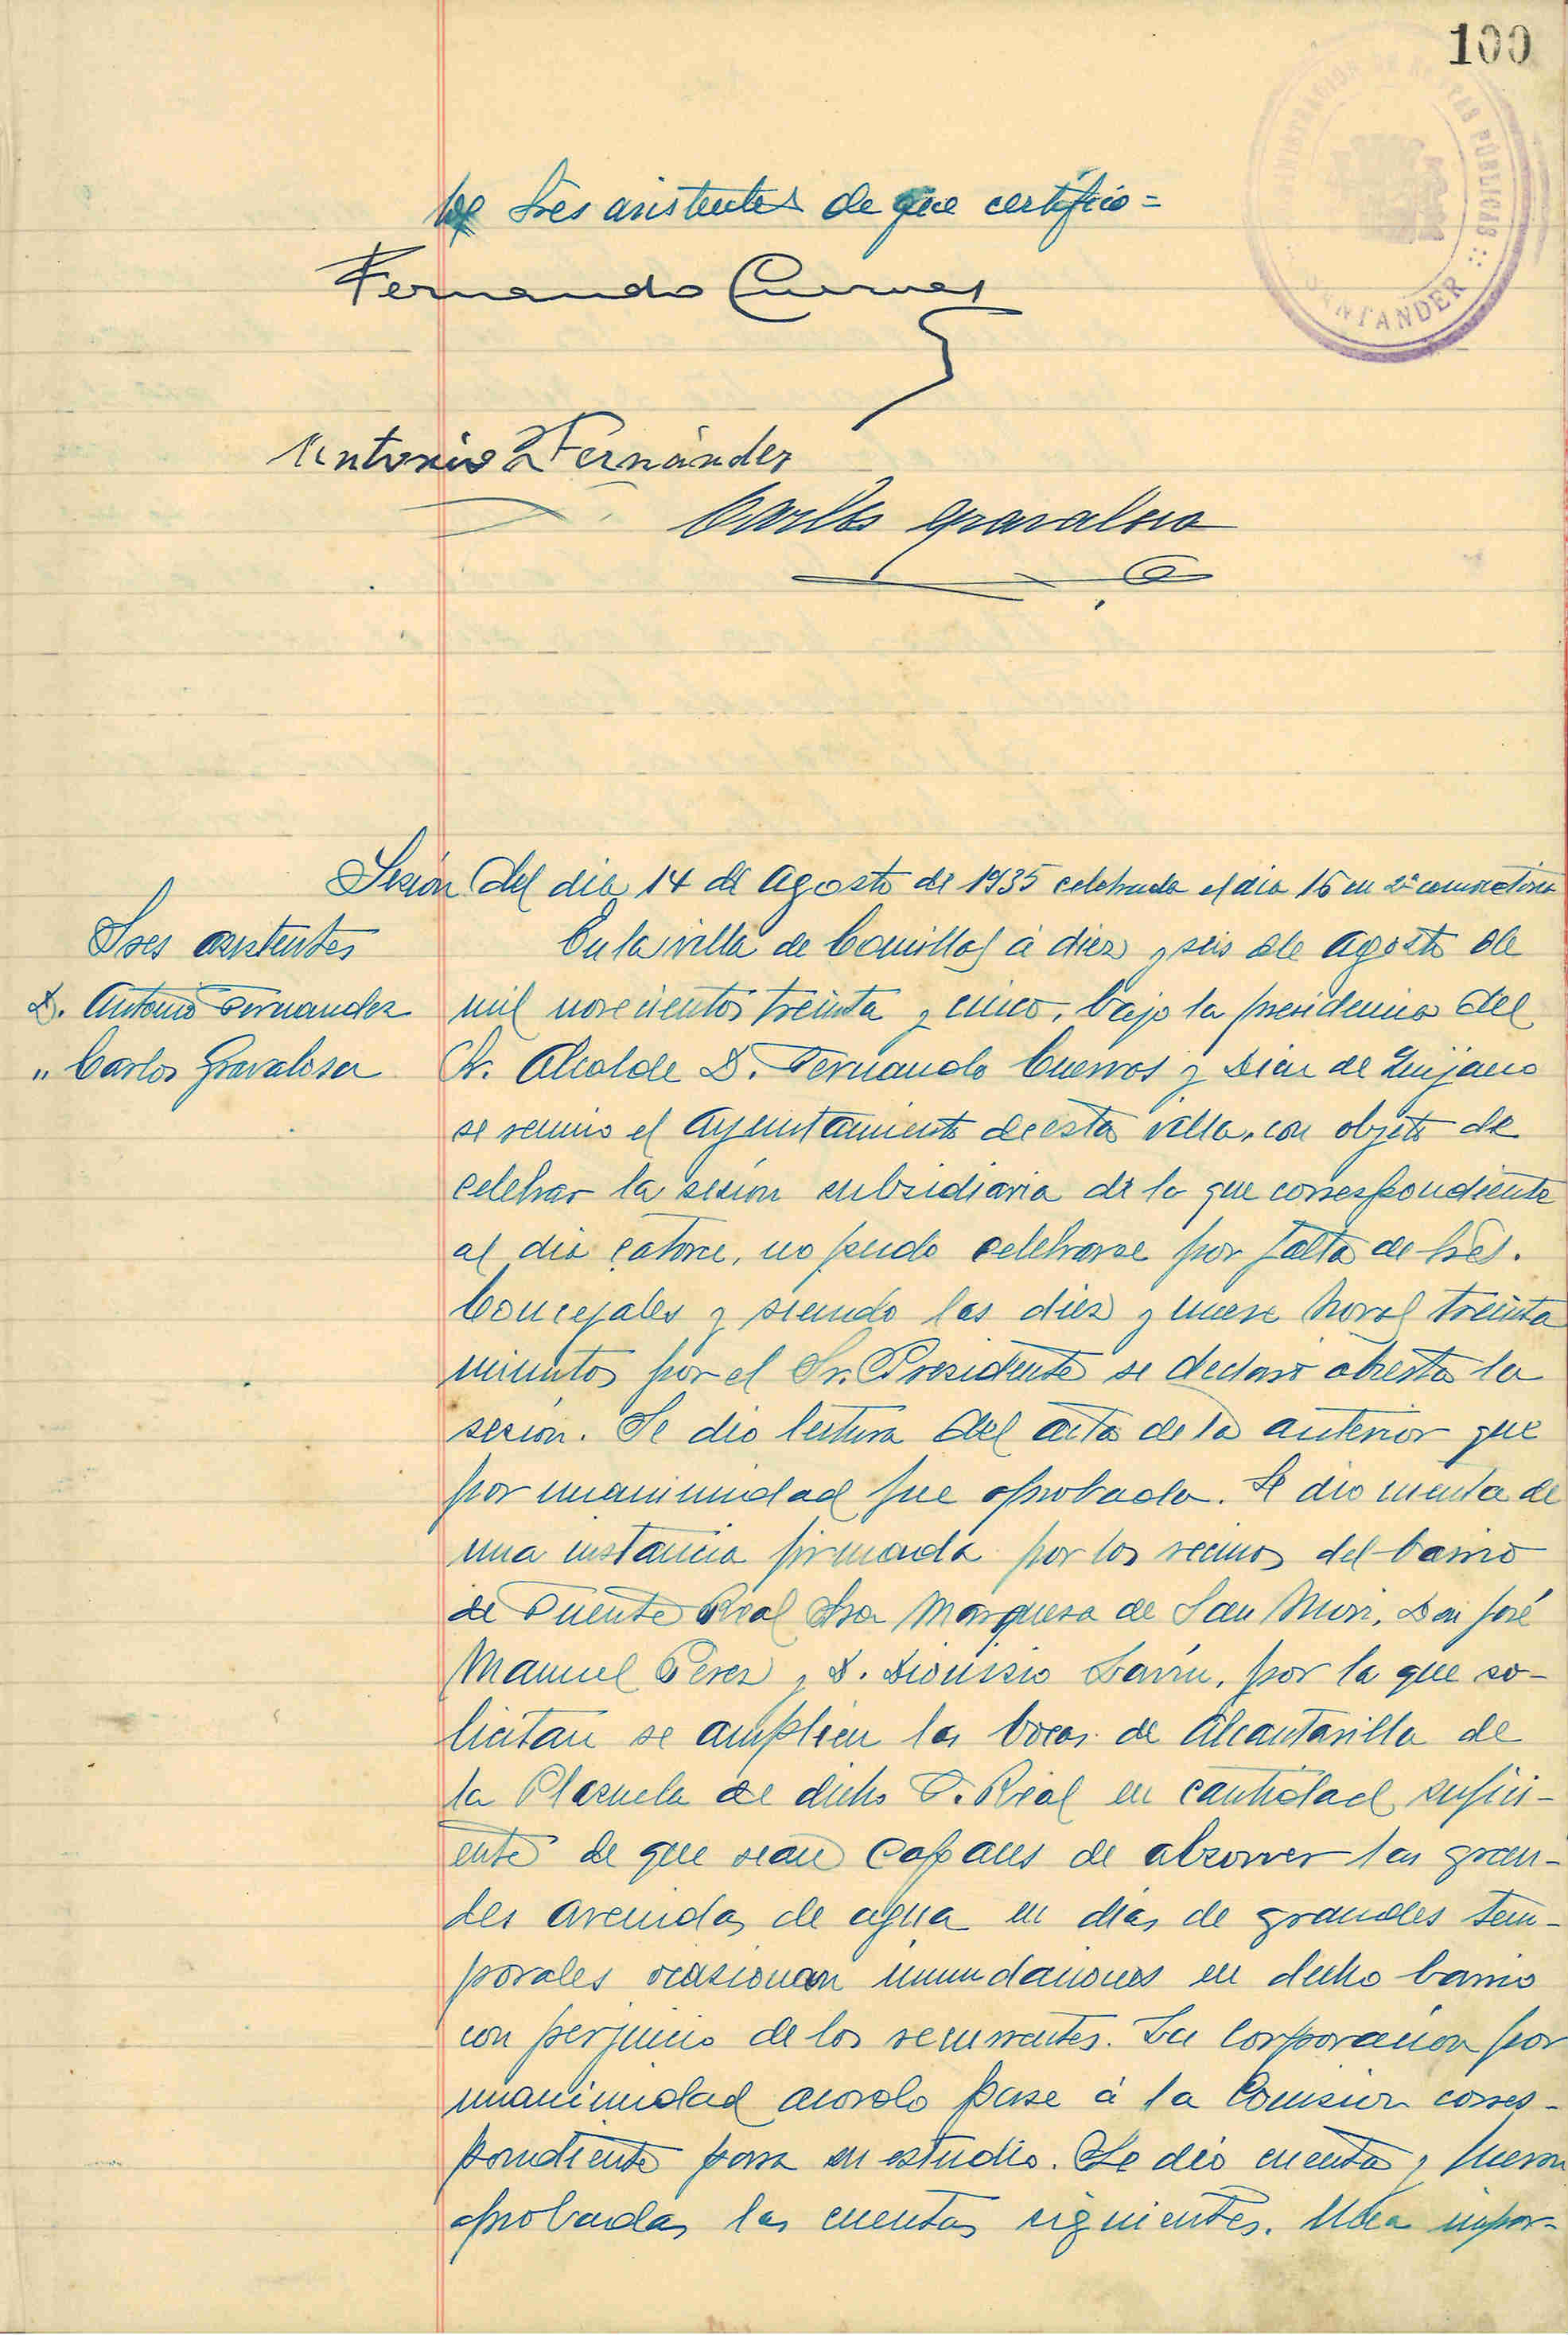 100
ADMINISTRACIÓN DE RENTAS PÚBLICAS
SANTANDER
Sres asistentes de que certifico =
Fernando Cuevas
Antonio Fernández
Carlos Gravalosa
Sesión del dia 14 de Agosto de 1935 celebrada el dia 16 en 2ª convocatoria
Sres asistentes
D. Antonio Fernandez
" Carlos Gravalosa
En la villa de Comillas á diez y seis de Agosto de
mil novecientos treinta y cinco, bajo la presidencia del
Sr. Alcalde D. Fernando Cuevas y Diaz de Quijano
se reunio el Ayuntamiento de esta villa, con objeto de
celebrar la sesión subsidiaria de la que correspondiente
al dia catorce, no pudo celebrarse por falta de Sres.
Concejales y siendo las diez y nueve horas treinta
minutos por el Sr. Presidente se declaró abierta la
sesión. Se dio lectura del acta de la anterior que
por unanimidad fue aprobada. Se dio cuenta de
una instancia firmada por los vecinos del barrio
de Fuente Real Sra Marquesa de San Mori, Don José
Manuel Perez y D. Dionisio Lavin, por la que so-
licitan se amplien las bocas de Alcantarilla de
la Plazuela de dicho F. Real en cantidad sufici-
ente de que sean capaces de abzorver las gran-
des avenidas de agua en dias de grandes tem-
porales ocasionan inundaciones en dicho barrio
con perjuicio de los recurrentes. La Corporación por
unanimidad acordo pase á la Comision corres-
pondiente para su estudio. Se dió cuenta y fueron
aprobadas las cuentas siguientes. Una impor-